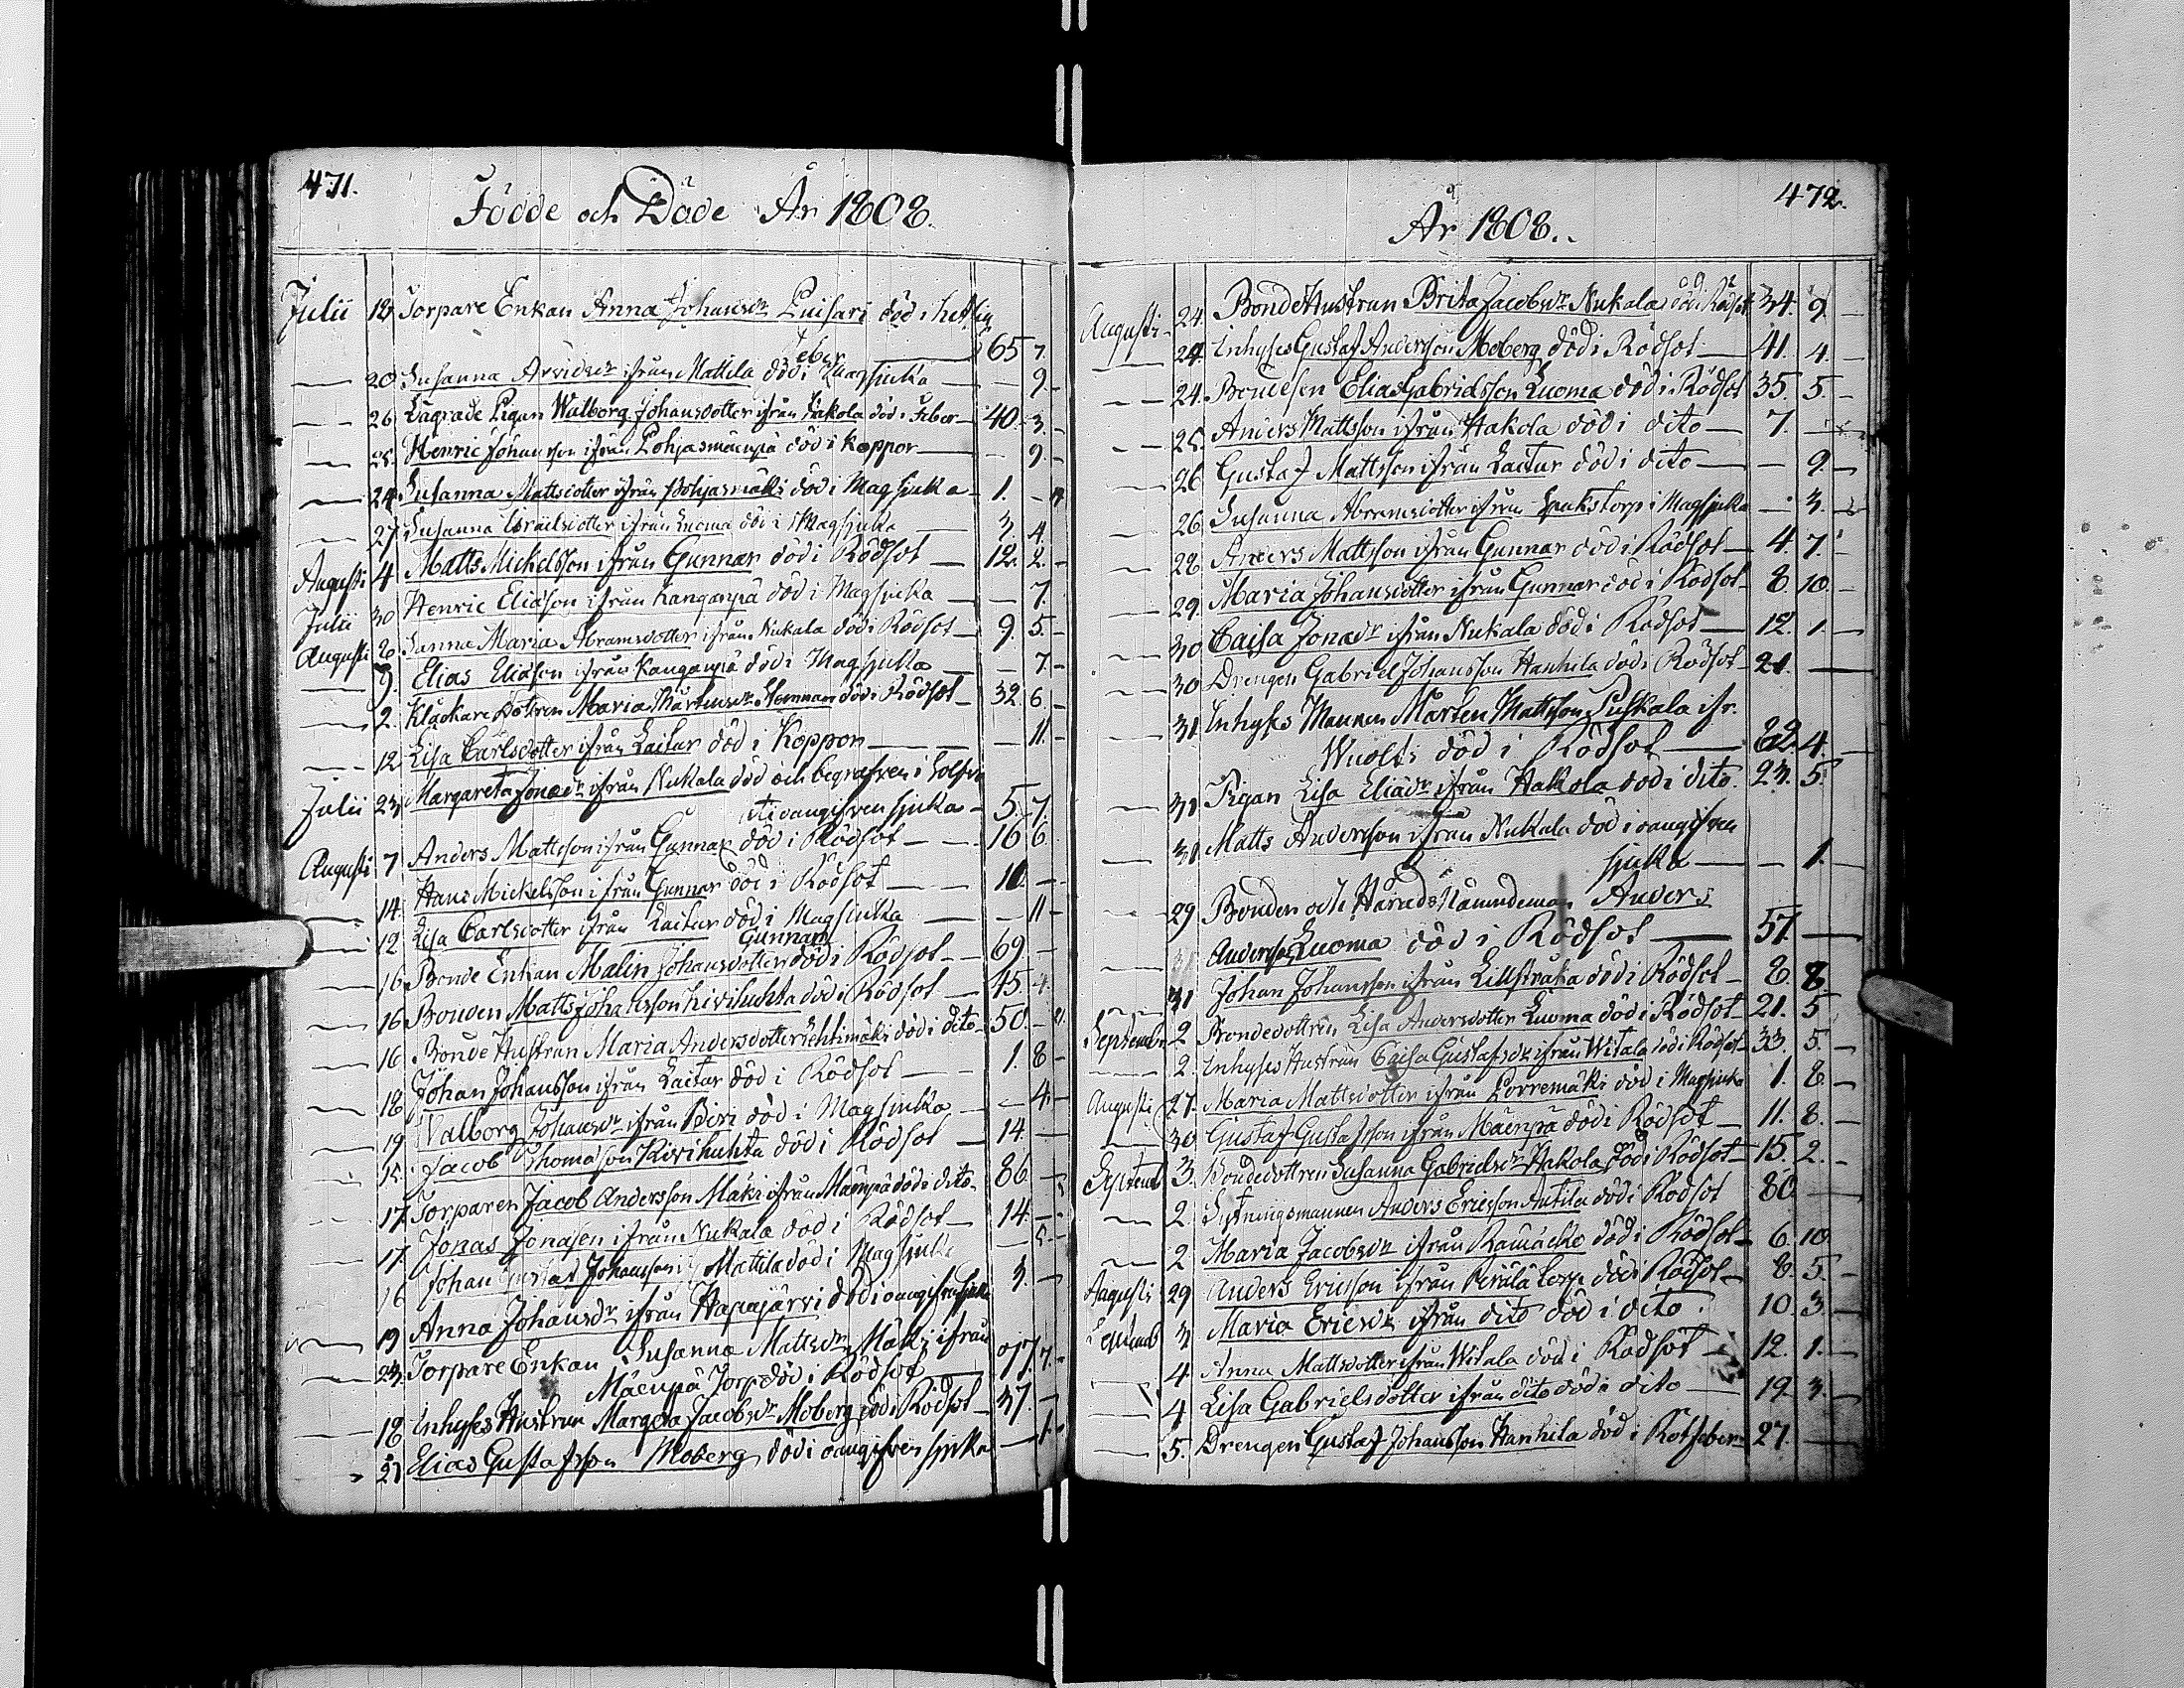 471.
Födde och Döde År 1808.
Julii 18 Torpare Enkan Anna Johansdr Luisari död i hetsig
feber — 65 7.
— 20 Susanna Arvidsdr ifrån Mattila död i Magsjuka — — 9.
— 26 Pigan Walborg Johansdotter ifrån Hakola död i Feber — 40. 3.
— 25. Henric Johansson ifrån Pohjasmäenpä död i Koppor — — 9.
— 24 Susanna Mattsdotter ifrån Pohjasmäki död i Magsjuka — 1. —
— 27 Susanna Israelsdotter ifrån Luoma död i Magsjuka — 3. 4.
Augusti 4 Matts Mickelsson ifrån Gunnar död i Rödsot — 12. 2. —
Julii 30 Henric Eliason ifrån Kangaspä död i Magsjuka — — 7.
Augusti 2. Sanna Maria Abramsdotter ifrån Nukala död i Rödsot — 9. 5. —
— 9. Elias Eliason ifrån Kangaspä död i Magsjuka — — 7. —
— 2. Klåckare Dottren Maria Mårtensdr död i Rödsot — 32 6. —
— 12 Lisa Carlsdotter ifrån Laitur död i Koppor — — 11. —
Julii 23 Margareta Jonædr ifrån Nukala död och begrafven i
oangifven sjuka — 5. 7.
Augusti 7 Anders Mattsson ifrån Gunnar död i Rödsot — 16 6.
— 14. Hans Mickelsson ifrån Gunnar död i Rödsot — 10. —
— 12 Lisa Carlsdotter ifrån Laitur död i Magsjuka — — 11 —
Gunnar
— 16 Bonde Enkan Malin Johansdotter död i Rödsot — 69. —
— 16 Bonden Matts Johansson Kivihuhta död i Rödsot — 45 4.
— 16 Bonde Hustrun Maria Andersdotter Lehtimäki död i dito — 50. —
— 18 Johan Johansson ifrån Laitur död i Rödsot — 1. 8 —
— 19 Walborg Johansdr ifrån död i Magsjuka — — 4. —
— 15. Jacob Thomasson Kivihuhta död i Rödsot — 14. —
— 17 Torparen Jacob Andersson Mäki ifrån Mäenpä död i dito 86 —
— 17. Jonas Jonasen ifrån Nukala död i Rödsot — 14. —
16 Johan Gustaf Johansson Mattila död i Magsjuka — 5. —
— 19 Anna Johansdr ifrån Hapajärvi död i oangifven sjuka 3. —
— 23. Torpare Enkan Susanna Mattsdr Mäki ifrån
Mäenpä Torp död i Rödsot — 77. 7. —
— 18 Inhyses Hustrun Margeta Jacobsdr Moberg död i Rödsot — 37. —
21 Elias Gustafsson Moberg död i oangifven sjuka — 1. —
472.
År 1808.
Augusti — 24. BondeHustrun Brita Jacobsdr Nukala död i Rödsot 34. 9. —
— 24. Inhyses Gustaf Andersson Moberg död i Rödsot — 41. 4. —
— 24. Bondesen Elias Gabrielsson Luoma död i Rödsot 35. 5. —
— 25. Anders Mattsson ifrån Hakola död i dito — 7. —
— 26 Gustaf Mattsson ifrån Laitur död i dito — — 9. —
— 26 Susanna Abramsdotter ifrån torp i Magsjuka — 3. —
— 28 Anders Mattsson ifrån Gunnar död i Rödsot — 4. 7. —
— 29. Maria Johansdotter ifrån Gunnar död i Rödsot — 8. 10. —
— 30 Caisa Jonædr ifrån Nukala död i Rödsot — 12. 1. —
— 30 Drengen Gabriel Johansson Hanhila död i Rödsot — 21. —
— 31 Inhyses Mannen Mårten Mattsson ifr.
Wuolti död i Rödsot — 62. 4. —
— 31 Pigan Lisa Eliædr ifrån Hakola död i dito. 23. 5.
— 31 Matts Andersson ifrån Nukala död i oangifven
sjuka — — 1.
— 29 Bonden och Härads Nämndeman Anders
Andersson Luoma död i Rödsot — 57. —
— 31 Johan Johansson ifrån Lillstråka död i Rödsot — 8. 8
Septembr 2 Bondedottren Lisa Andersdotter Luoma död i Rödsot — 21. 5
— 2. Inhyses Hustrun Caisa Gustafsdr ifrån Witala död i Rödsot — 33. 5. —
Augusti 27. Maria Mattsdotter ifrån Porremäki död i Magsjuka 1. 8. —
— 30 Gustaf Gustafsson ifrån Mäenpä död i Rödsot — 11. 8. —
Septemb 3. Bondedottren Susanna Gabrielsdr Hakola död i Rödsot — 15. 2. —
— 2. Sytningsmannen Anders Ericsson Antila död i Rödsot 80. —
— 2 Maria Jacobsdr ifrån Ramäcko död i Rödsot — 6. 10.
Augusti 29 Anders Ericsson ifrån Perälä Torp död i Rödsot — 8. 5. —
Septemb 3 Maria Ericsdr ifrån dito död i dito. 10. 3 —
— 4. Anna Mattsdotter ifrån Witala död i Rödsot — 12. 1. —
— 4 Lisa Gabrielsdotter ifrån dito död i dito — 19. 3. —
— 5. Drengen Gustaf Johansson Hanhila död i Rötfeber — 27. —